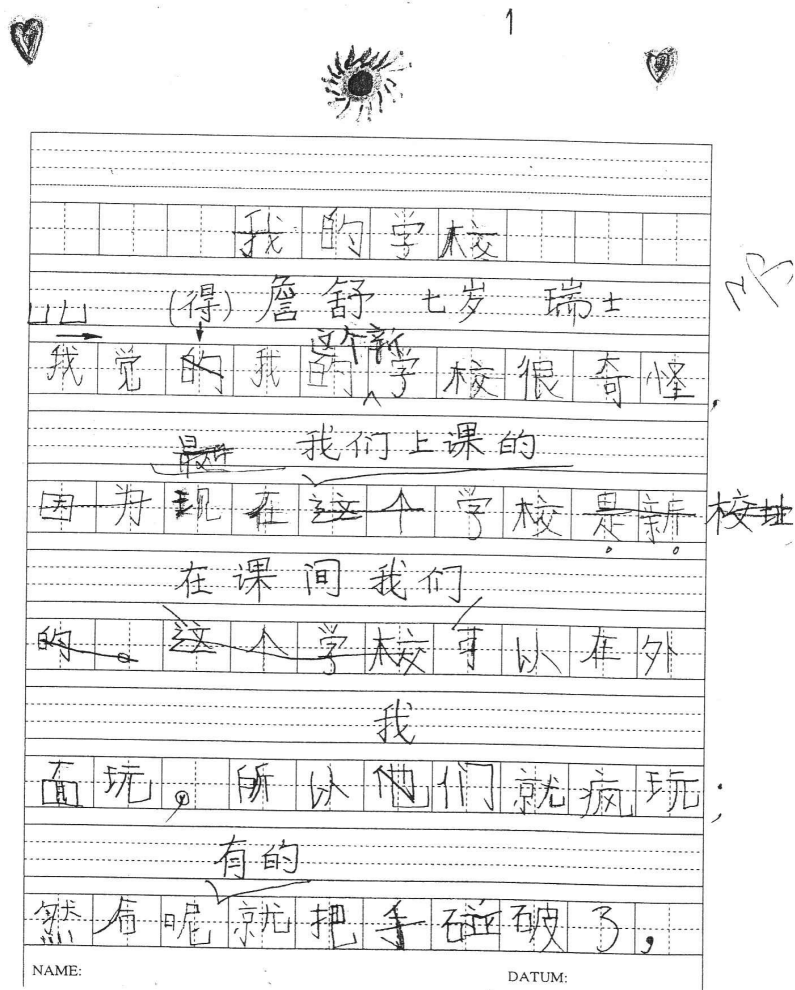 1
我的学校
(得) 詹舒 七岁 瑞士
这个新
我觉的我的学校很奇怪,
我们上课的
因为现在这个学校是新校址
在课间我们
的。这个学校可以在外
我
面玩。所以他们就疯玩;
有的
然后呢就把手碰破了,
NAME:
DATUM: